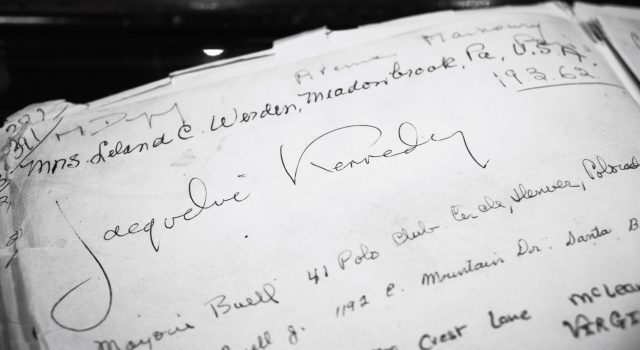 Mrs. Leland C. Worden, Meadowbrook, Pa, U.S.A.
19.3.62
Jacqueline Kennedy
Marjorie Buell 41 Polo Club Circle, Denver, Colorad
Buell J. 1192 E. Mountain Dr. Santa B
Crest Lane McLean
VIRGI